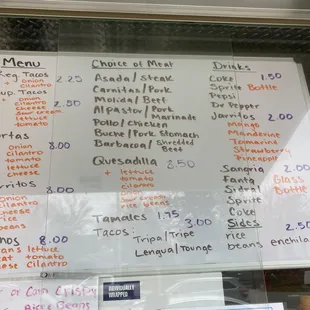 Menu
Reg. Tacos 2.25
+ onion
cilantro
Sup. Tacos 2.80
+ onion
cilantro
cheese
sour cream
lettuce
tomato
ortas
onion 8.00
cilantro
tomato
lettuce
rritos 8.00
onion
cilantro
cheese
rice
beans
nos 8.00
ans lettuce
eat tomato
ese Cilantro
Choice of Meat
Asada/Steak
Carnitas/Pork
Molida/Beef
Al pastor/Pork Marinade
Pollo/Chicken
Buche/Pork Stomach
Barbacoa/Shredded Beef
Quesadilla 8.50
+ lettuce
tomato
cilantro
sour cream
rice beans
Tamales 1.75
Tacos: 3.00
Tripa/Tripe
Lengua/Tounge
Drinks
Coke 1.50
Sprite Bottle
Pepsi
Dr Pepper
Jarritos 2.00
Mango
Manderine
Tamarine
Strawberry
Pineapple
Sangria 2.00
Fanta Glass
Sidral Bottle
Sprite
Coke
Sides 2.50
rice enchila
beans
INDIVIDUALLY
WRAPPED